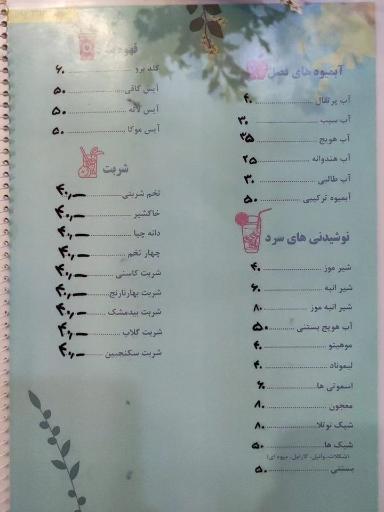 آبمیوه های فصل
آب پرتقال ۴۰
آب سیب ۳۰
آب هویج ۳۵
آب هندوانه ۲۵
آب طالبی ۳۰
آبمیوه ترکیبی ۵۰
نوشیدنی های سرد
شیر موز ۴۰
شیر انبه ۶۰
شیر انبه موز ۸۰
آب هویج بستنی ۵۰
موهیتو ۴۰
لیموناد ۴۰
اسموتی ها ۶۰
معجون ۸۰
شیک نوتلا ۸۰
شیک ها ۵۰
(شکلات، وانیل، کارامل، میوه ای)
بستنی ۵۰
قهوه
کلد برو ۶۰
آیس کافی ۵۰
آیس لاته ۵۰
آیس موکا ۵۰
شربت
تخم شربتی
خاکشیر
دانه چیا
چهار تخم
شربت کاسنی
شربت بهارنارنج
شربت بیدمشک
شربت گلاب
شربت سکنجبین